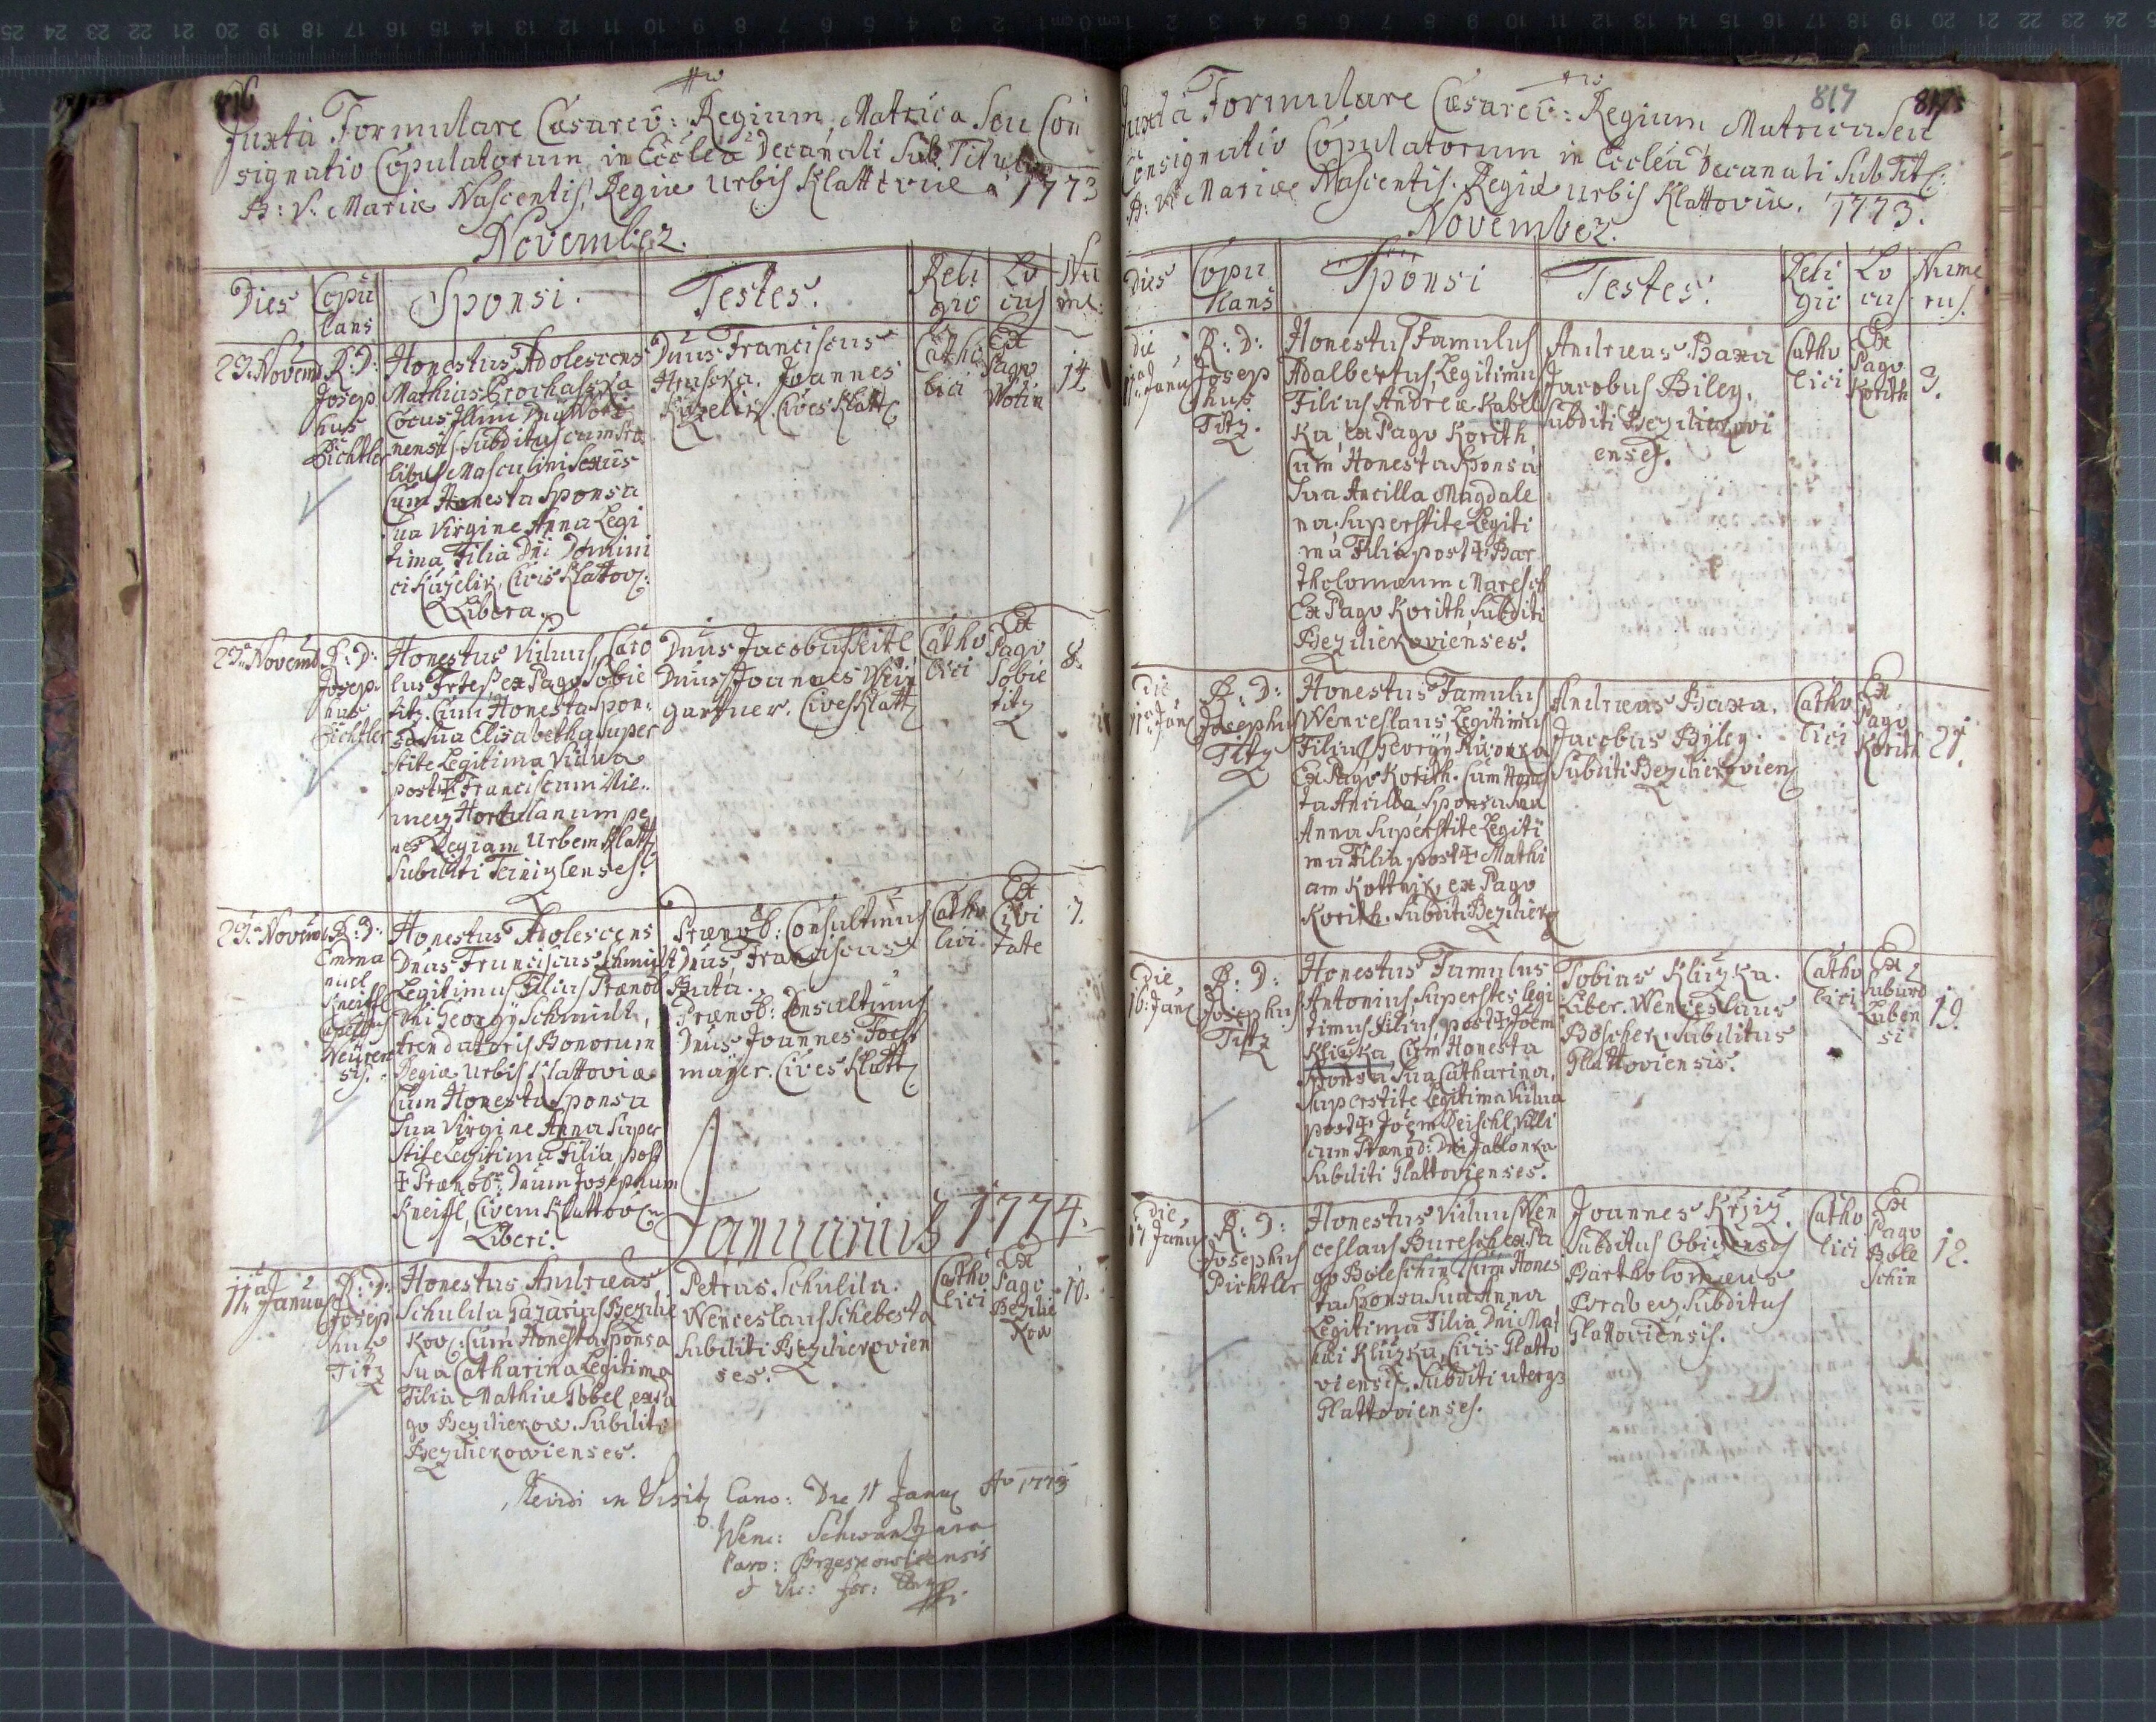 816
Juxta Formulare Cæsareo: Regium, Matrica Seu Con
signatio Copulatorum in Ecclea Decanali Sub Titulo
B: V: Mariæ Nascentis, Regiæ Urbis Klattoviæ a 1773
November.
Dies Copu lans Sponsi. Testes. Reli gio Lo cus Nu me:
23. Novemb
R: D:
Josep
hus
Pichtler
Honestus Adolescens
Mathias Prochasska
Cocus Illmi Dni Woti
nensis Subditus cum
libus Masculini Sexus
Cum Honesta Sponsa
Sua Virgine Anna Legi
tima Filia Dni Domini
ci Kuzelik, Civis Klattov:
Libera.
Dnus Franciscus
Hrusska. Joannes
Kuzelik Cives Klatt
Catho
lici
Ex
Pago
Wotin
14.
23. Novemb
R: D:
Josep
hus
Pichtler
Honestus Viduus, Caro
lus ex Pago Sobie
titz. Cum Honesta Spon
sa Sua Elisabetha Super
stite Legitima Vidua
post ‡ Franciscum Nie
mecz Hortulanum pe
nes Regiam Urbem Klatt
Subditi Teiniczlenses.
Dnus Jacobus Heitl
Dnus Joannes Wein
gartner. Cives Klatt
Catho
lici
Ex
Pago
Sobie
titz
8.
23. Novemb
R: D:
Emma
nuel
Kneissl
Neuren
sis.
Honestus Adolescens
Dnus Franciscus Schmidt
Legitimus Filius Prænob
Dni Georgy Schmidt,
Arendatoris Bonorum
Regiæ Urbis Klattoviæ
Cum Honesta Sponsa
Sua Virgine Anna Super
stite Legitima Filia post
‡ Prænob: Dnum Josephum
Kneissl, Civem Klattov
Liberi.
Prænob: Consultmus
Dnus Franciscus
Huta.
Prænob: Consultmus
Dnus Joannes
mayer. Cives Klatt
Catho
lici
Ex
Civi
tate
7.
Januarius 1774.
11. Januar
R: D:
Josep
hus
Titz
Honestus Andreas
Schulda Bezdie
kov: Cum Honesta Sponsa
Sua Catharina Legitima
Filia Mathiæ Gobel, ex Pa
go Bezdiekow. Subditi
Bezdiekowienses.
Petrus Schulda.
Wenceslaus Schebesta
Subditi Bezdiekovien
ses.
Catho
lici
Ex
Pago
Bezdie
kow
10.
in Visit Cano: Die 11 Janu Ao 1773
Wenc: Schwantzara
et Vic: for:
817 817
Juxta Formulare Cæsareo: Regium Matrica Seu
Consignatio Copulatorum in Ecclea Decanali Sub Tit:
B: V: Mariæ Nascentis. Regiæ Urbis Klattoviæ. 1773.
November.
Dies Copu lans Sponsi Testes. Reli gio Lo cus Nume rus.
die
11. Janu
R: D:
Josep
hus
Titz.
Honestus Famulus
Adalbertus, Legitimus
Filius Andreæ Kabel
ka, ex Pago Korith,
Cum Honesta Sponsa
Sua Ancilla Magdale
na Superstite Legiti
ma Filia post ‡ Bar
tholomæum Maresch
Ex Pago Korith, Subditi
Bezdiekovienses.
Andreas Baxa
Jacobus Biley.
Subditi Bezdiekovi
enses.
Catho
lici
Ex
Pago
Korith
3.
Die
11. Jan
R: D:
Josephus
Titz
Honestus Famulus
Wenceslaus, Legitimus
Filius Georgy
Ex Pago Korith. Cum Hones
ta Ancilla Sponsa Sua
Anna Superstite Legiti
ma Filia post ‡ Mathi
am Kottnik, ex Pago
Korith. Subditi Bezdiek
Andreas Baxa.
Jacobus Byley.
Subditi Bezdiekovien
Catho
lici
Ex
Pago
Korith
21.
Die
16. Jan
R: D:
Josephus
Titz
Honestus Famulus
Antonius, Superstes legi
timus Filius post ‡ Joem
Kliczka, Cum Honesta
Sponsa Sua Catharina,
Superstite Legitima Vidua
post ‡ Joem Deischl, Villi
cum Prænob: Dni Jablonka
Subditi Glattovienses.
Tobias Kliczka.
Liber. Wenceslaus
Böscher. Subditus
Glattoviensis.
Catho
lici
Ex
Suburb
Luben
si
19.
die
17 Janu
R: D:
Josephus
Pichtler
Honestus Viduus Wen
ceslaus Buresch ex Pa
go Boleschin Cum Hones
ta Sponsa Sua Anna
Legitima Filia Dni Mat
hæi Kliczka, Civis Glatto
viensis. Subditi uterq3
Glattovienses.
Joannes
Subditus
Bartholomæus
Subditus
Glattoviensis.
Catho
lici
Ex
Pago
Bole
schin
12.